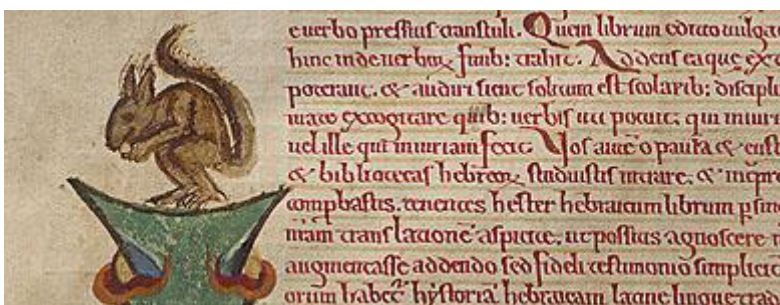 e uerbo pressius transtuli. Quem librum editio uulga
hinc inde uerboꝝ funib: trahit. Addens eaque ex
poterant. & audiri sicut solitum est scolarib: discipli
mate excogitare quib: uerbis uti potuit. qui iniuri
uel ille qui iniuriam fecit. Vos autē o paula & eust
& bibliotecas hebreoꝝ studuistis intrare. & inṫpre
comphastis. tenentes hester hebraicum librum p sin
nram translationē aspicite. ut possitis agnoscere
augmentasse addendo sed fideli testimonio simplici
orum habet hystoriā hebraicam latine lingue trad